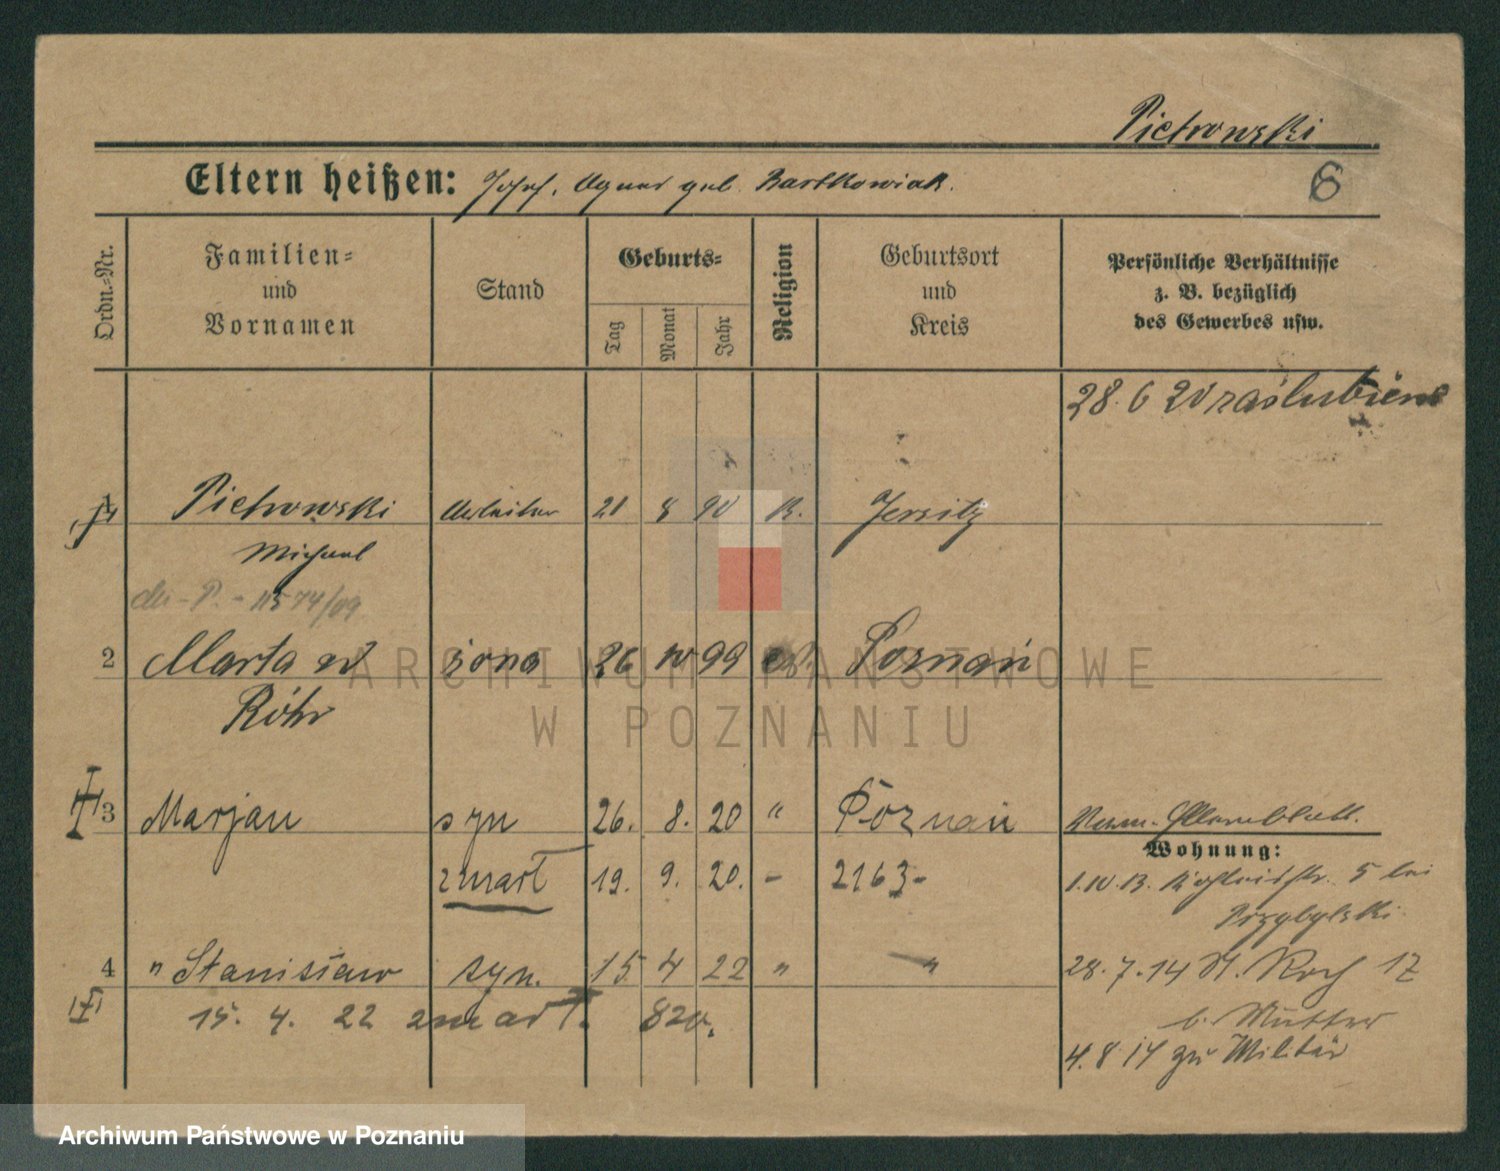 Pietrowski
Eltern heißen: Josef, Agnes geb. Bartkowiak.
6
Ordn.-Nr.
Familien-
und
Vornamen
Stand
Geburts-
Tag
Monat
Jahr
Religion
Geburtsort
und
Kreis
Persönliche Verhältnisse
z. B. bezüglich
des Gewerbes usw.
28. 6 20 zaślubieni
1 Pietrowski Arbeiter 21 8 90 K. Jersitz
Michael
11574/09
2 Marta zd żona 26 10 99 Poznań
Röhr
3 Marjan syn 26. 8. 20 " Poznań
Wohnung:
zmarł 19. 9. 20. - 2163-
1.10.13. 5 bei
Przybylski
4 " Stanisław syn. 15 4 22 " "
28. 7. 14 St. Roch 12
15. 4. 22 zmarł. 820.
b. Mutter
4. 8 14 zu Militär
ARCHIWUM PAŃSTWOWE
W POZNANIU
Archiwum Państwowe w Poznaniu